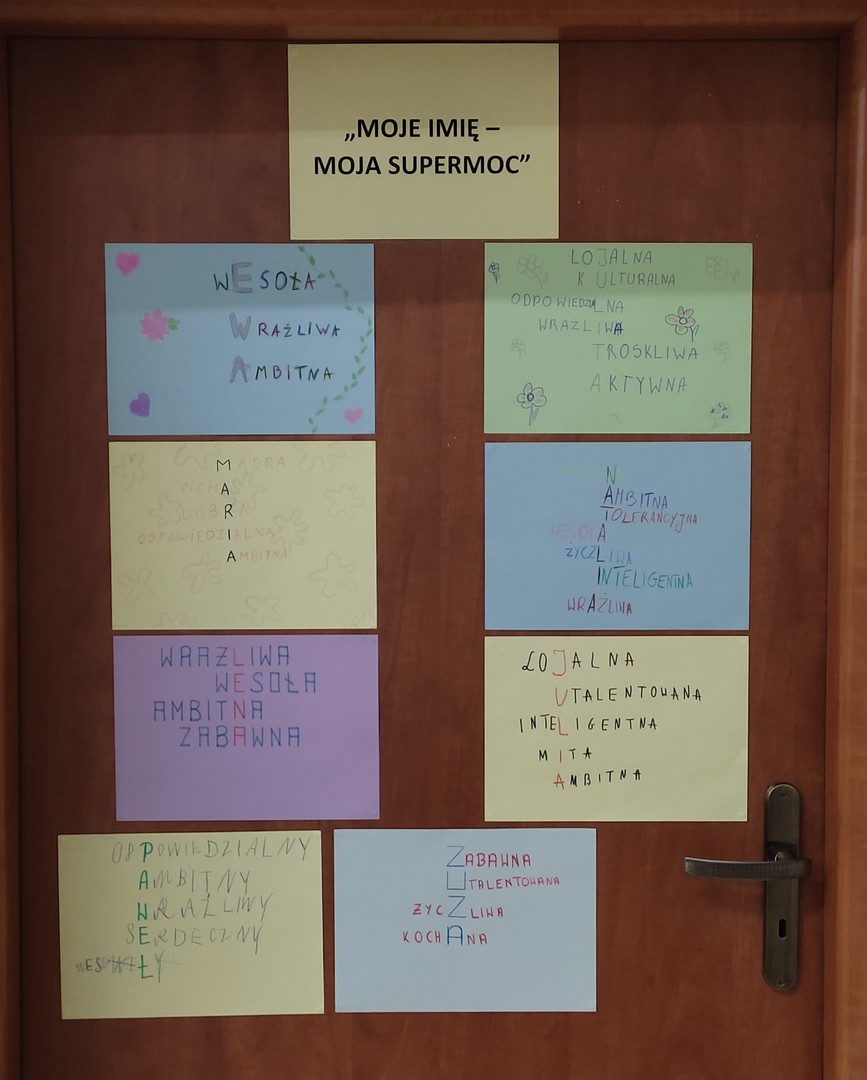 „MOJE IMIĘ –
MOJA SUPERMOC”
WESOŁA
WRAŻLIWA
AMBITNA
LOJALNA
KULTURALNA
ODPOWIEDZIALNA
WRAŻLIWA
TROSKLIWA
AKTYWNA
MĄDRA
CICHA
DOBRA
ODPOWIEDZIALNA
AMBITNA
N
AMBITNA
TOLERANCYJNA
WESOŁA
ŻYCZLIWA
INTELIGENTNA
WRAŻLIWA
WRAŻLIWA
WESOŁA
AMBITNA
ZABAWNA
LOJALNA
UTALENTOWANA
INTELIGENTNA
MIŁA
AMBITNA
ODPOWIEDZIALNY
AMBITNY
WRAŻLIWY
SERDECZNY
WESOŁY
ZABAWNA
UTALENTOWANA
ŻYCZLIWA
KOCHANA